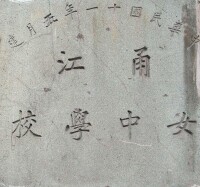 中華民國十一年五月造
甬江
女中學校